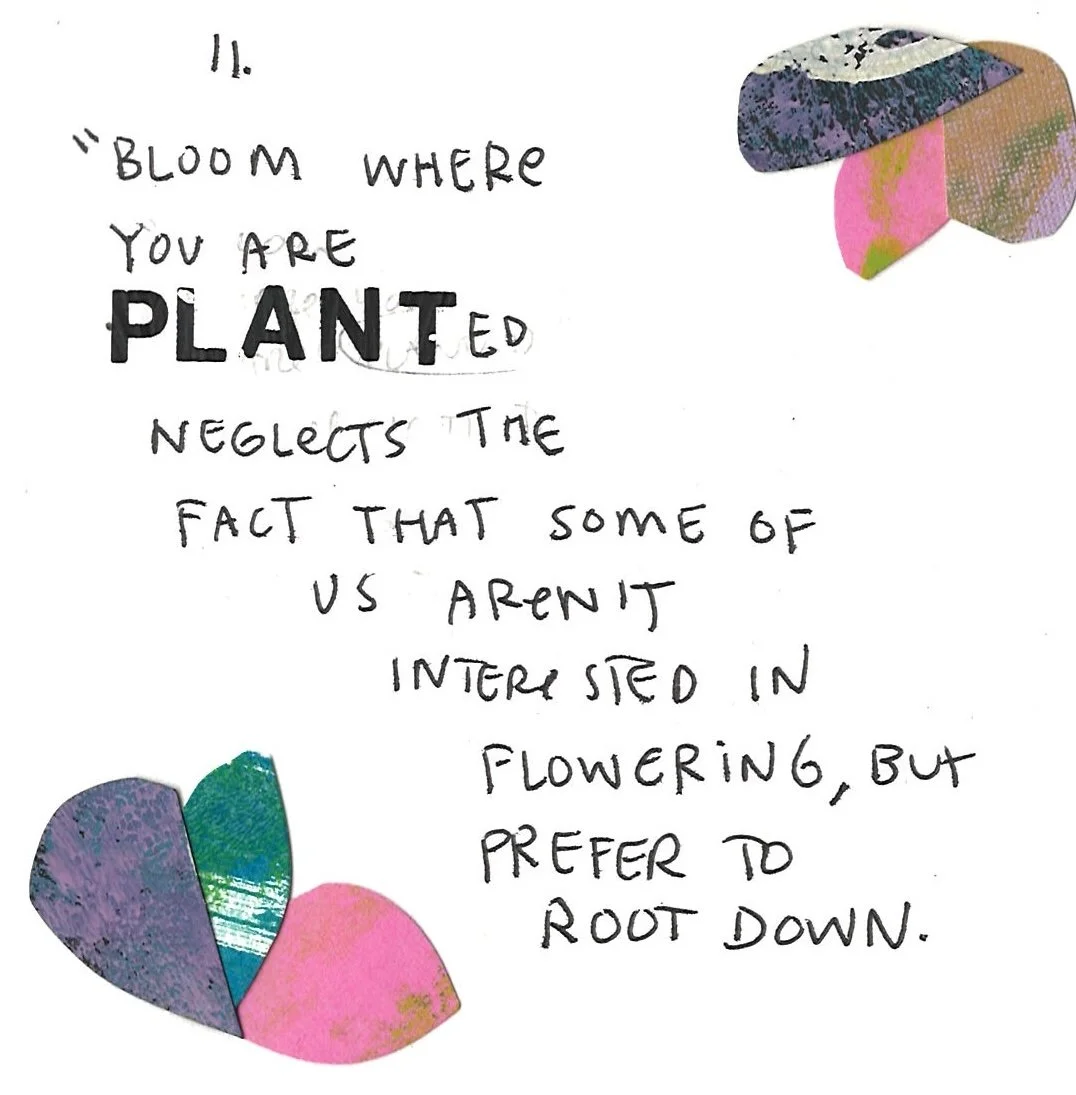 11.
"BLOOM WHERe
YOU ARE
PLANTED
NEGLeCTS THE
FACT THAT SOmE OF
US AReN'T
INTEReSTED IN
FLOWERiNG, BUt
PREFER TO
ROOT DOWN.